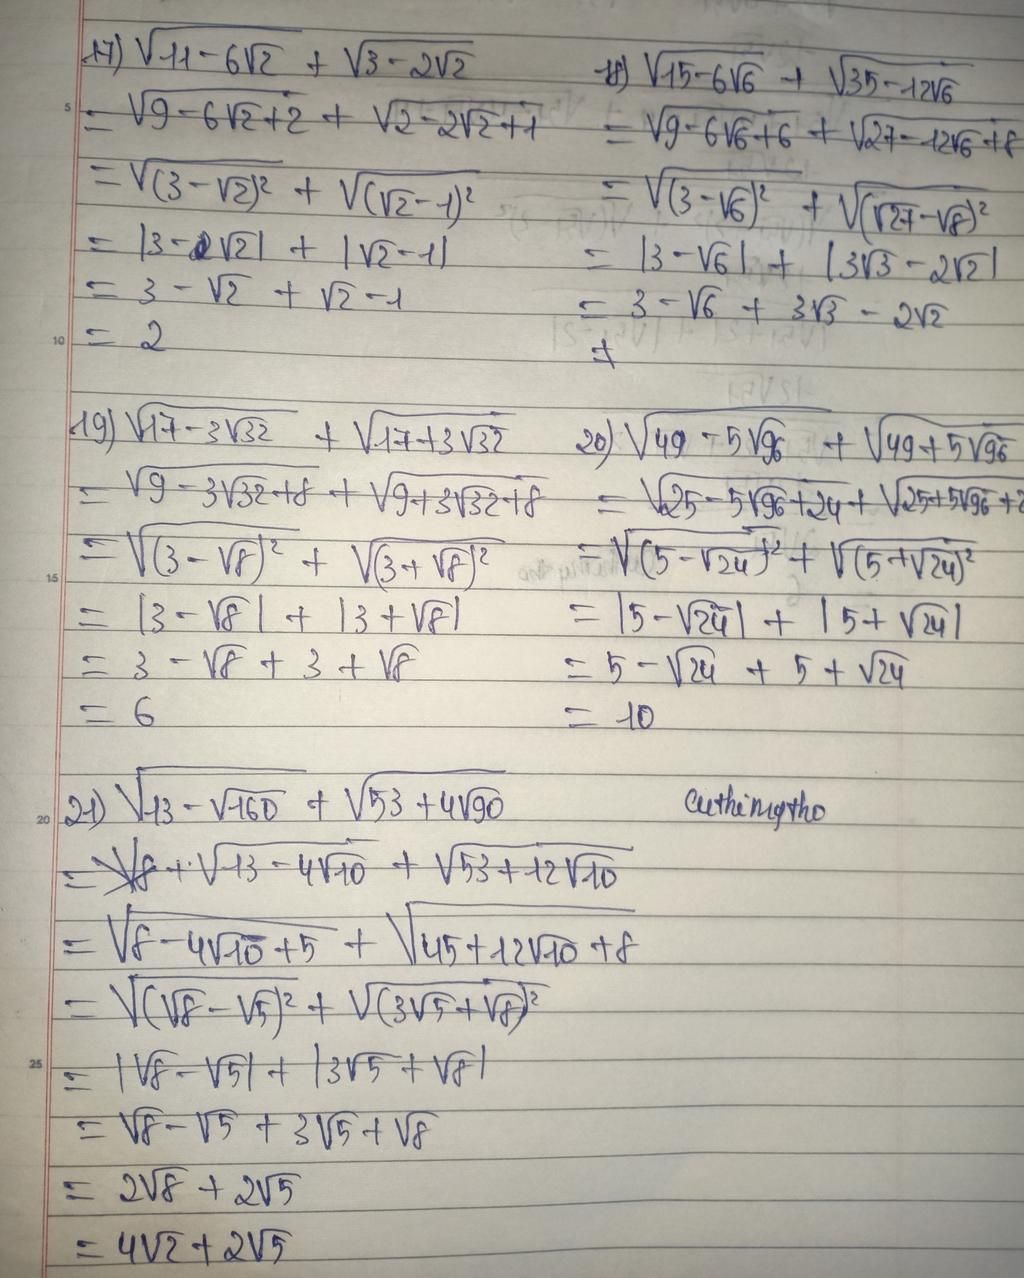 17) √11-6√2 + √3-2√2
= √9-6√2+2 + √2-2√2+1
= √(3-√2)² + √(√2-1)²
= |3-√2| + |√2-1|
= 3-√2 + √2-1
= 2
18) √15-6√6 + √35-12√6
= √9-6√6+6 + √27-12√6+8
= √(3-√6)² + √(√27-√8)²
= |3-√6| + |3√3-2√2|
= 3-√6 + 3√3-2√2
19) √17-3√32 + √17+3√32
= √9-3√32+8 + √9+3√32+8
= √(3-√8)² + √(3+√8)²
= |3-√8| + |3+√8|
= 3-√8 + 3+√8
= 6
20) √49-5√96 + √49+5√96
= √25-5√96+24 + √25+5√96+2
= √(5-√24)² + √(5+√24)²
= |5-√24| + |5+√24|
= 5-√24 + 5+√24
= 10
21) √13-√160 + √53+4√90
= √13-4√10 + √53+12√10
= √8-4√10+5 + √45+12√10+8
= √(√8-√5)² + √(3√5+√8)²
= |√8-√5| + |3√5+√8|
= √8-√5 + 3√5+√8
= 2√8 + 2√5
= 4√2 + 2√5
Cuthimytho
5
10
15
20
25